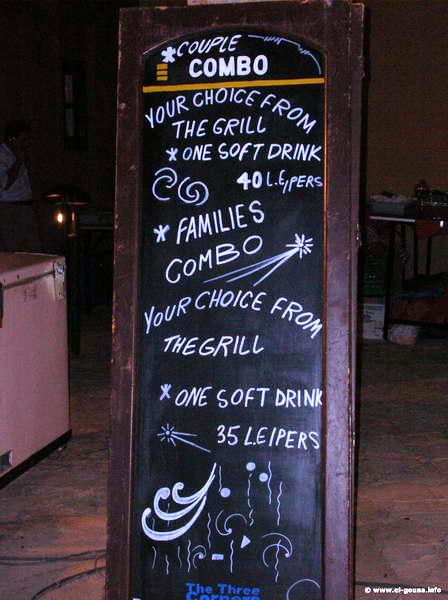 *COUPLE
COMBO
YOUR CHOICE FROM
THE GRILL
* ONE SOFT DRINK
40 L.E/PERS
* FAMILIES
COMBO
YOUR CHOICE FROM
THE GRILL
* ONE SOFT DRINK
35 L.E/PERS
The Three
Corners
© www.el-gouna.info